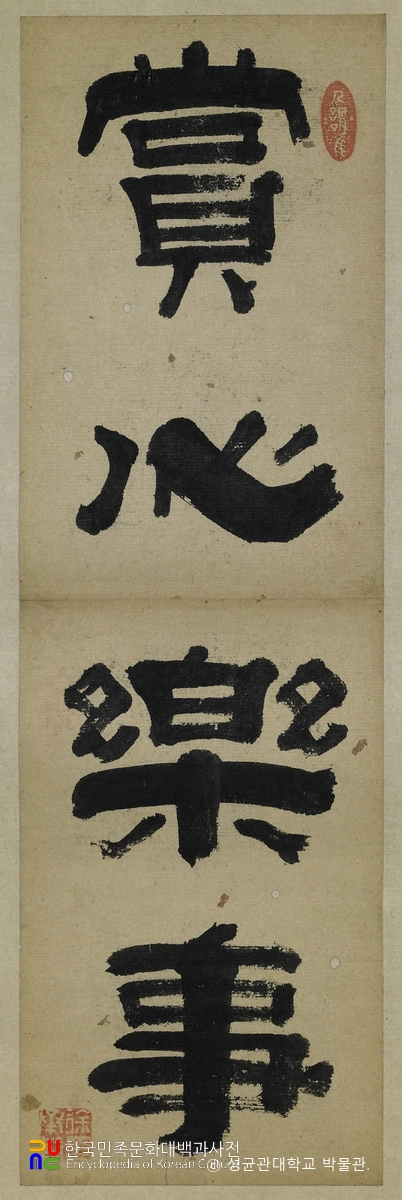 賞心樂事
한국민족문화대백과사전
Encyclopedia of Korean Culture
© 성균관대학교 박물관.